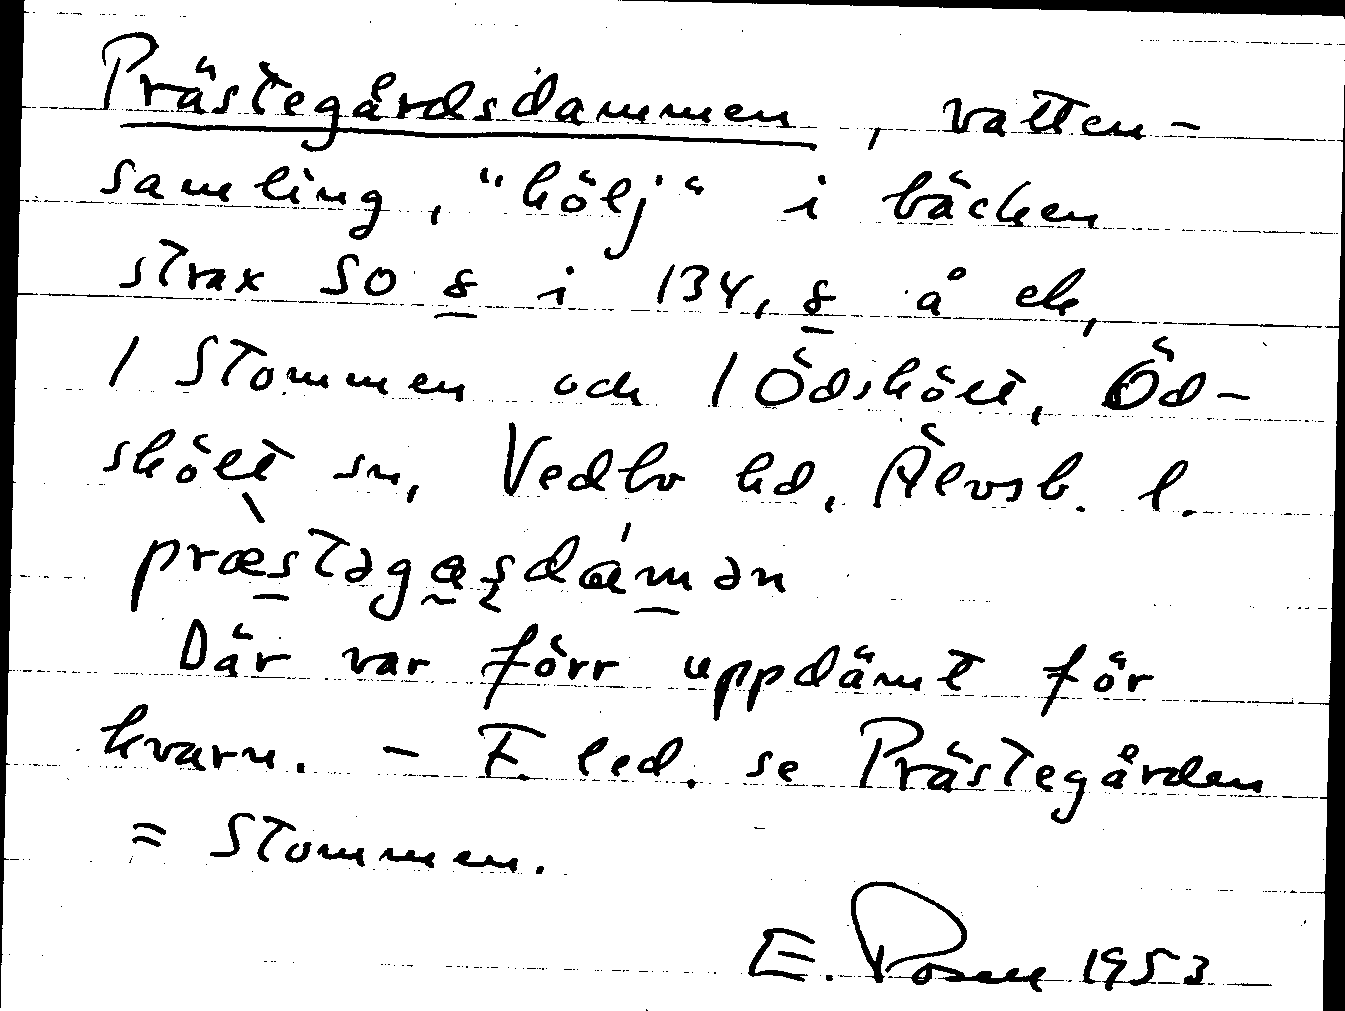 Prästegårdsdammen, vatten-
samling, "hölj" i bäcken
strax SO 8 i 134, 8 å ek,
1 Stommen och 1 Ödskölt, Öd-
skölt sn, Vedbo hd, Älvsb. l.
præstəgaʂdámən
Där var förr uppdämt för
kvarn. - F. led. se Prästegården
= Stommen.
E. Rosell 1953